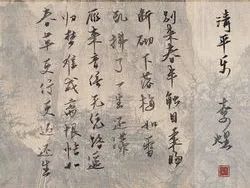 清平乐 李煜
别来春半触目柔肠
断砌下落梅如雪
乱拂了一身还满
雁来音信无凭路遥
归梦难成离恨恰如
春草更行更远还生